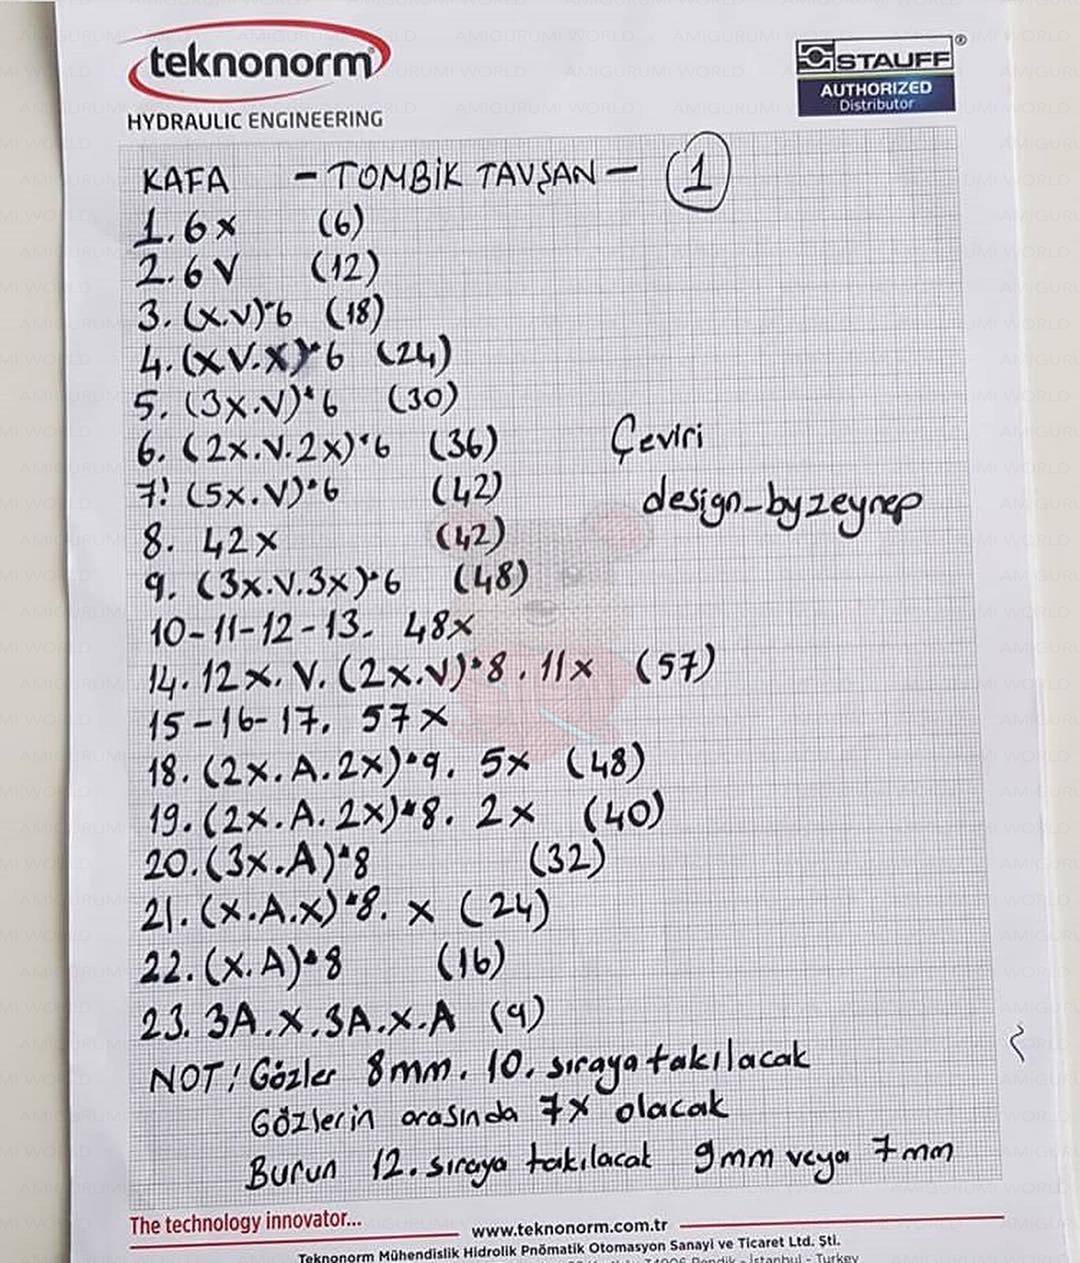 teknonorm®
HYDRAULIC ENGINEERING
STAUFF®
AUTHORIZED
Distributor
KAFA - TOMBİK TAVŞAN - 1
1. 6x (6)
2. 6V (12)
3. (x.v)*6 (18)
4. (xV.x)*6 (24)
5. (3x.V)*6 (30)
6. (2x.V.2x)*6 (36)
7! (5x.V)*6 (42)
8. 42x (42)
9. (3x.V.3x)*6 (48)
10-11-12-13. 48x
14. 12x. V. (2x.V)*8. 11x (57)
15-16-17. 57x
18. (2x.A.2x)*9. 5x (48)
19. (2x.A.2x)*8. 2x (40)
20. (3x.A)*8 (32)
21. (x.A.x)*8. x (24)
22. (x.A)*8 (16)
23. 3A.x.3A.x.A (9)
Çeviri
design_byzeynep
NOT! Gözler 8mm. 10. sıraya takılacak
Gözlerin arasında 7x olacak
Burun 12. sıraya takılacak 9mm veya 7mm
The technology innovator...
www.teknonorm.com.tr
Teknonorm Mühendislik Hidrolik Pnömatik Otomasyon Sanayi ve Ticaret Ltd. Şti.
34906 Pendik - İstanbul - Turkey
AMIGURUMI WORLD